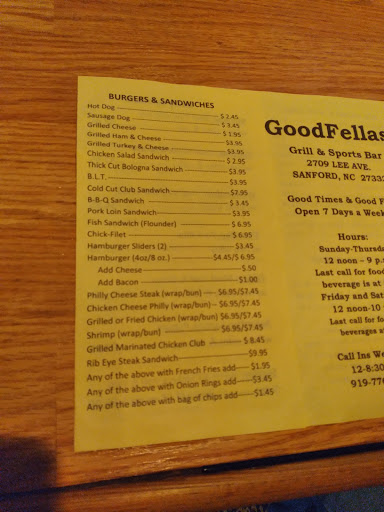 BURGERS & SANDWICHES
Hot Dog $ 2.45
Sausage Dog $ 3.45
Grilled Cheese $ 1.95
Grilled Ham & Cheese $3.95
Grilled Turkey & Cheese $3.95
Chicken Salad Sandwich $ 2.95
Thick Cut Bologna Sandwich $3.95
B.L.T. $3.95
Cold Cut Club Sandwich $7.95
B-B-Q Sandwich $ 3.45
Pork Loin Sandwich $3.95
Fish Sandwich (Flounder) $ 6.95
Chick-Filet $ 6.95
Hamburger Sliders (2) $3.45
Hamburger (4oz/8 oz.) $4.45/$ 6.95
Add Cheese $.50
Add Bacon $1.00
Philly Cheese Steak (wrap/bun) $6.95/$7.45
Chicken Cheese Philly (wrap/bun) $6.95/$7.45
Grilled or Fried Chicken (wrap/bun) $6.95/$7.45
Shrimp (wrap/bun) $6.95/$7.45
Grilled Marinated Chicken Club $ 8.45
Rib Eye Steak Sandwich $9.95
Any of the above with French Fries add $1.95
Any of the above with Onion Rings add $3.45
Any of the above with bag of chips add $1.45
GoodFellas
Grill & Sports Bar
2709 LEE AVE.
SANFORD, NC 2733
Good Times & Good F
Open 7 Days a Week
Hours:
Sunday-Thursda
12 noon – 9 p.
Last call for food
beverage is at
Friday and Sat
12 noon-10
Last call for fo
beverage is
Call Ins We
12-8:30
919-77